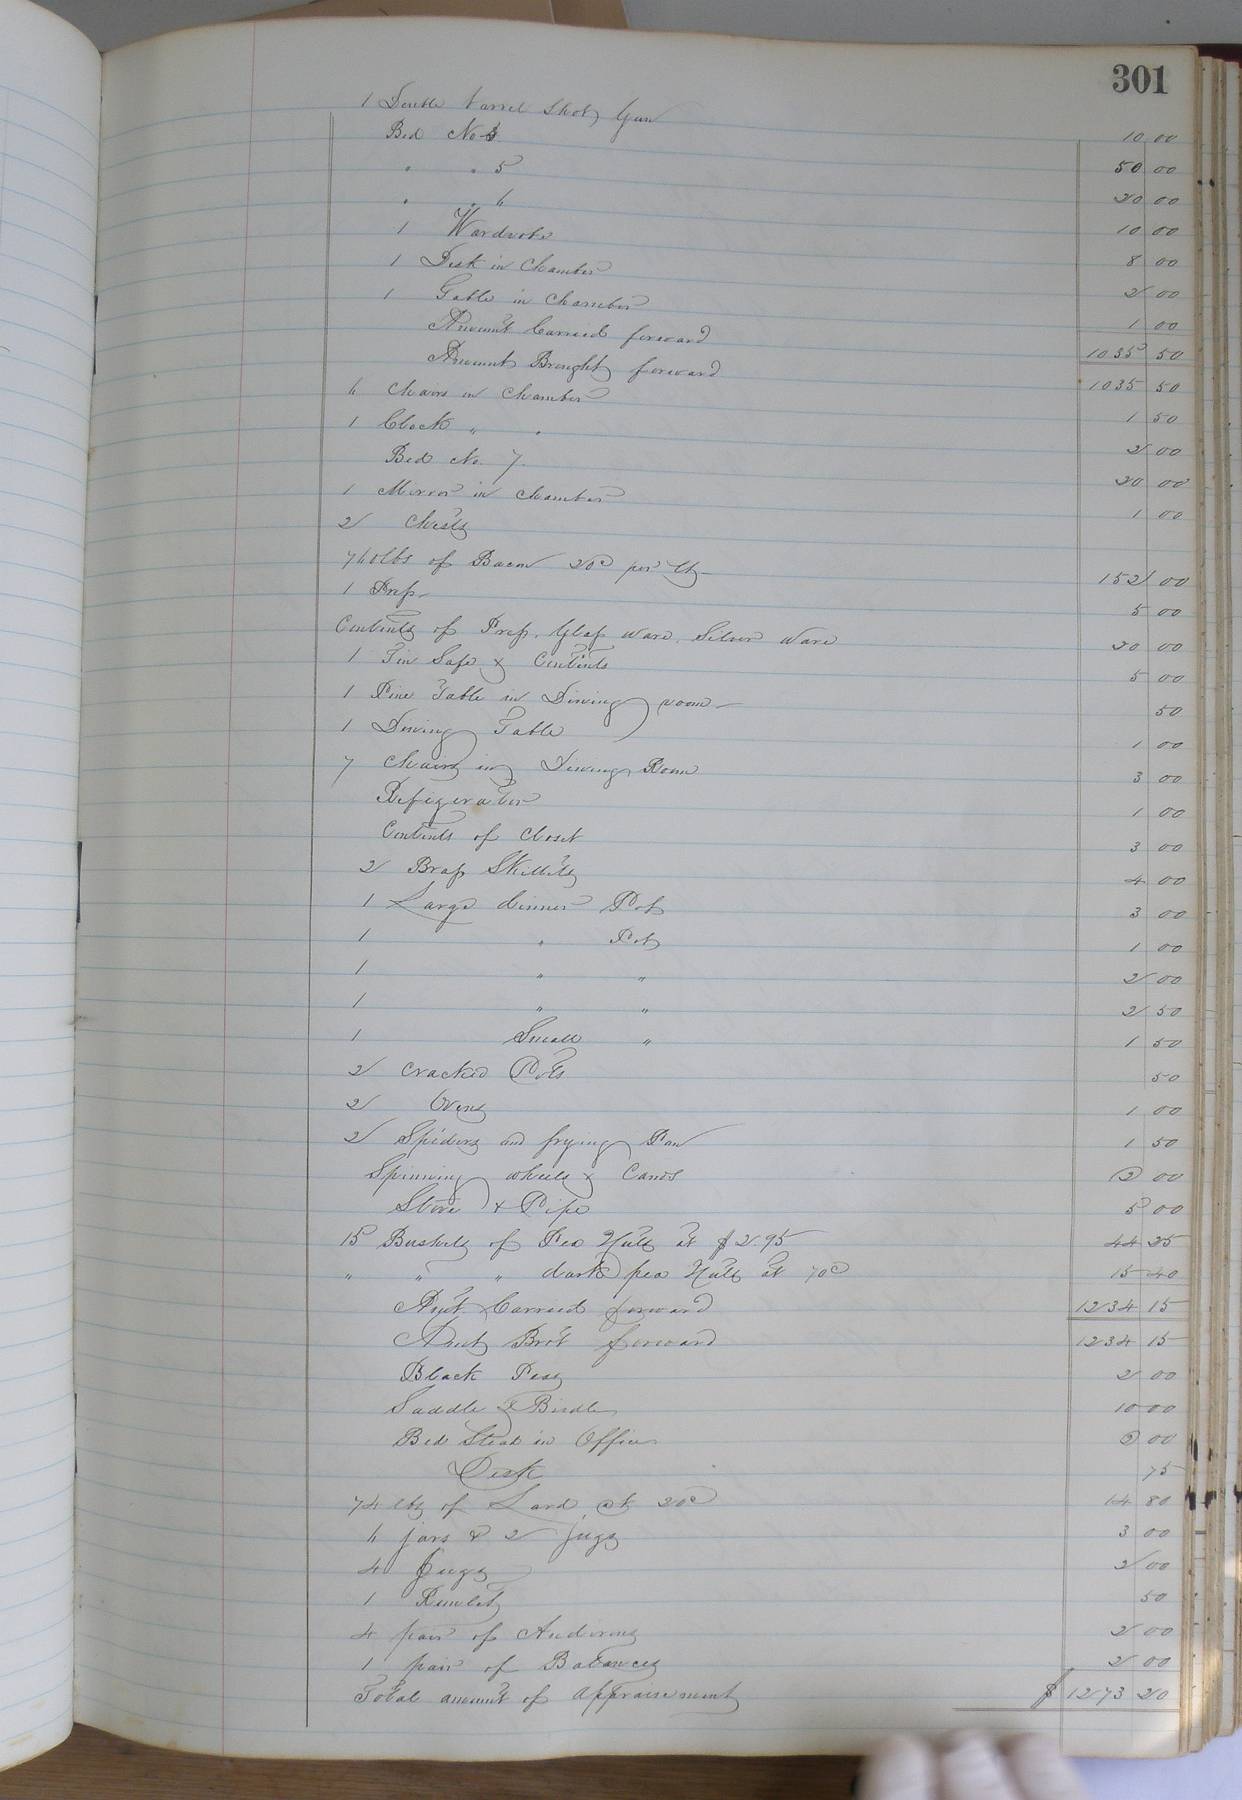 301
1 Double barrel Shot Gun 10 00
Bed No 50 00
" " 5 20 00
" " 6 10 00
1 Wardrobe 8 00
1 Desk in Chamber 2 00
1 Table in Chamber 1 00
Amount Carried forward 1035 50
Amount Brought forward 1035 50
6 Chairs in Chamber 1 50
1 Clock " " 2 00
Bed No. 7. 20 00
1 Mirror in Chamber 1 00
2 Chests
760 lbs of Bacon 20c per lb 152 00
1 Press 5 00
Contents of Press, Glass ware, Silver ware 00
1 Tin Safe & Contents 5 00
1 Pine Table in Dining room 50
1 Dining Table 1 00
7 Chairs in Dining Room 3 00
Refigerator 1 00
Contents of Closet 3 00
2 Brass Skillets 4 00
1 Large dinner Pot 3 00
1 " Pot 1 00
1 " " 2 00
1 " " 2 50
1 Small " 1 50
2 Cracked Pots 50
2 Ovens 1 00
2 Spiders and frying Pan 1 50
Spinning wheels & Cards 2 00
Stove & Pipe 5 00
15 Bushels of Pea Nuts at $2.95 44 25
" " " dark pea Nuts at 70c 15 40
Amt. Carried forward 1234 15
Amt Brot forward 1234 15
Black Peas 2 00
Saddle & Bridle 10 00
Bed Stead in Office 2 00
Desk 75
74 lbs of Lard at 20c 14 80
6 jars & 2 jugs 3 00
4 Jugs 2 00
1 Runlet 50
4 pair of Andirons 2 00
1 pair of Balances 2 00
Total amount of appraisement $ 1273 20